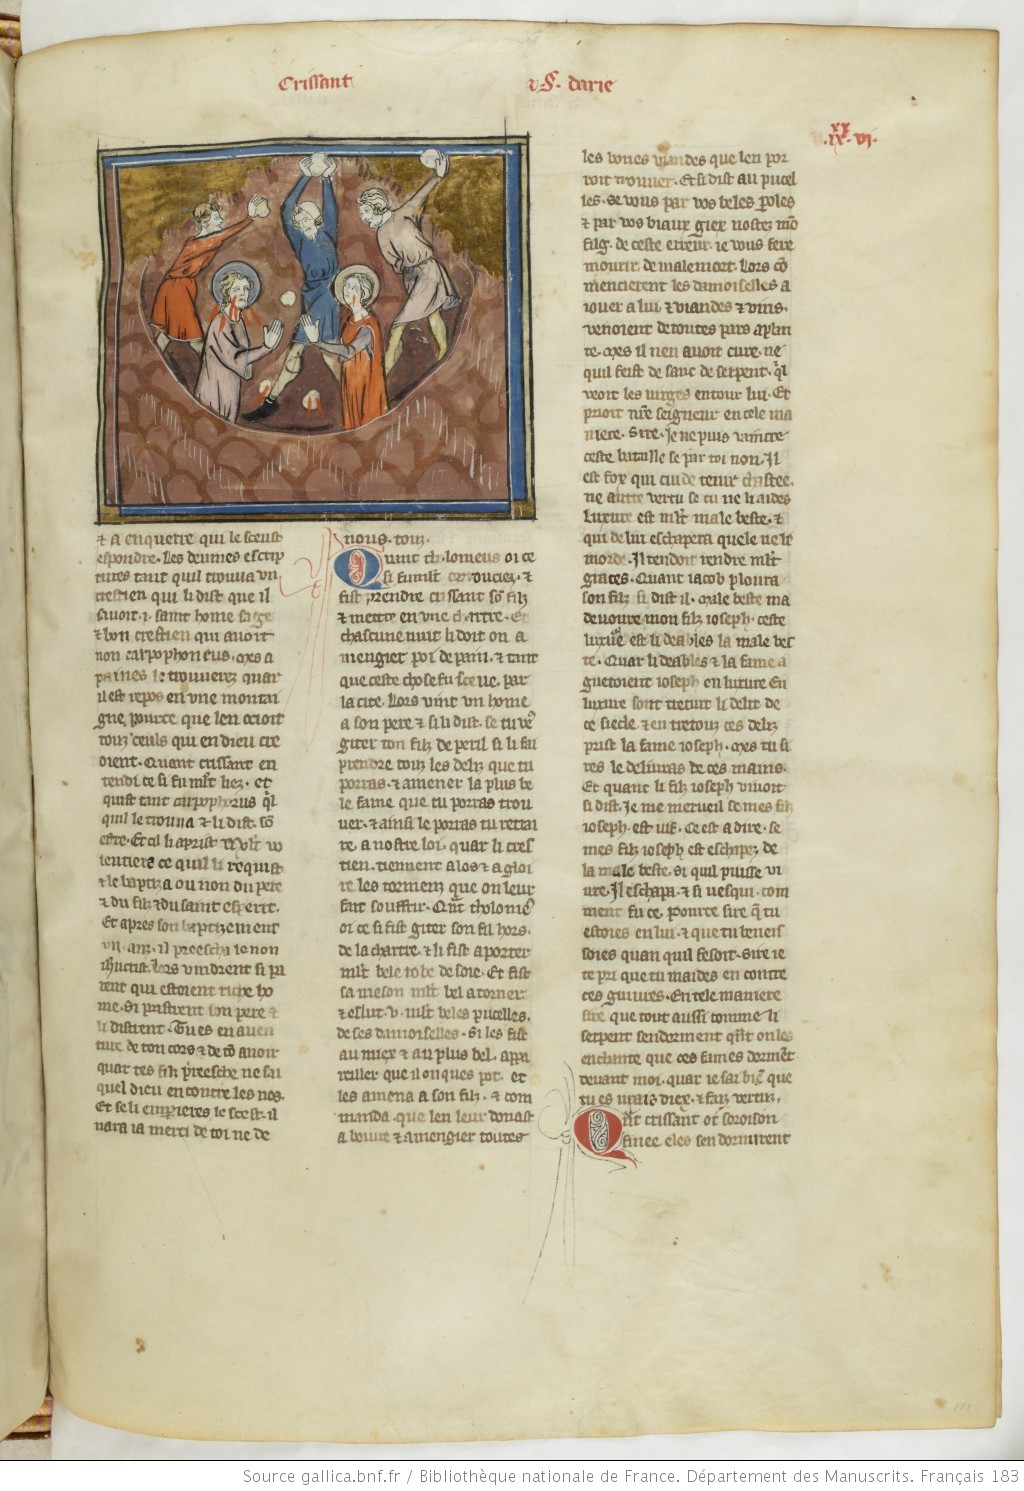 Crissant
⁊ S. darie
les bones viandes que len por
roit trouver. Et si dist au pucel
les. se vous par vos beles poles
⁊ par vos biaux giex nostez mō
filz. de ceste erreur. ie vous fere
mourir. de male mort. Lors cō
mencierent les damoiselles a
iouer a lui. ⁊ viandes ⁊ vins.
venoient de toutes pars a plan
te. Mes il nen avoit cure. ne
quil feist de sanc de serpent. qͥl
veoit les virges entour lui. Et
prioit nr̄e seigneur en cele ma
niere. Sire. Je ne puis vaincre
ceste bataille se par toi non. Il
est fox qui cuide tenir chastee.
ne autre vertu se tu ne li aides
Luxure est ml̄t male beste. ⁊
qui de lui eschapera quele ne le
morde. Il tendoit rendre ml̄t
graces. Quant iacob ploura
son filz si dist il. Male beste ma
devoure mon filz ioseph. ceste
luxure est li deables la male bes
te. Quar li deables ⁊ la fame a
guetoient ioseph en luxure En
luxure sont tretuit li delit de
ce siecle ⁊ en tretouz ces deliz
prist la fame ioseph. Mes tu si
res le delivras de ces mains.
Et quant li filz ioseph vivoit
si dist. Je me merueil se mes filz
ioseph. est vif. Ce est a dire. se
mes filz ioseph est eschapez de
la male beste. si quil puisse vi
vre. Il eschapa. ⁊ si vesqui. com
ment fu ce. Pource sire q̄ tu
estoies en lui. ⁊ que tu beneis
soies quan quil fesoit. Sire ie
te pri que tu maides en contre
ces guivres. En tele maniere
sire que tout aussi comme li
serpent sendorment qn̄t on les
enchante que ces fames dorment
devant moi. quar ie sai biē que
tu es vrais diex. ⁊ filz vertuz.
Qn̄t crissant ot soroison
finee eles sendormirent
⁊ a enquerre qui le sceust
espondre. Les devines escrip
tures tant quil trouva un
crestien qui li dist que il
savoit .i. saint home sage
⁊ bon crestien qui avoit
non carpophoneus. Mes a
paines le trouverez quar
il est repos en une montai
gne. pource que len ocioit
touz ceuls qui en dieu cre
oient. Quant crissant en
tendi ce si fu ml̄t liez. et
quist tant carpophorus qͥl
quil le trouva ⁊ li dist. sō
estre. Et cil li aprist ml̄t vo
lentiers ce quil li requist
⁊ le baptiza ou non du pere
⁊ du filz ⁊ du saint esperit.
Et apres son baptizement
un. an. il preescha le non
ihūcrist. Lors vindrent si pa
rent qui estoient riche ho
me. Si pristrent son pere ⁊
li distrent. Tu es en aven
ture de ton cors ⁊ de tō avoir
quar tes filz preesche ne sai
quel dieu en contre les nos.
Et se li emperieres le scest. il
naraia merci de toi ne de
nous. touz.
Quant tholomeus oi ce
si fu ml̄t corrouciez. ⁊
fist prendre crissant sō filz
⁊ mettre en une chartre. Et
chascune nuit li doit on a
mengier poi de pain. ⁊ tant
que ceste chose fu sceue. par
la cite. Lors vint un home
a son pere ⁊ si li dist. se tu ves
giter ton filz de peril si li fai
prendre touz les deliz que tu
porras. ⁊ amener la plus be
le fame que tu porras trou
ver. ⁊ ainsi le porras tu retrai
re. a nostre loi. quar li cres
tien. tiennent a los ⁊ a gloi
re les tormenz que on leur
fait souffrir. Qn̄t tholomē
oi ce si fist giter son fil hors.
de la chartre. ⁊ li fist aporter
ml̄t bele robe de soie. Et fist
sa meson ml̄t bel a torner
⁊ eslut .v. ml̄t beles pucelles.
de ses damoiselles. Si les fist
au miex ⁊ au plus bel. appa
reiller que il onques pot. et
les amena a son filz. ⁊ com
manda. que len leur donast
a boivre ⁊ a mengier toutes
Source gallica.bnf.fr / Bibliothèque nationale de France. Département des Manuscrits. Français 183